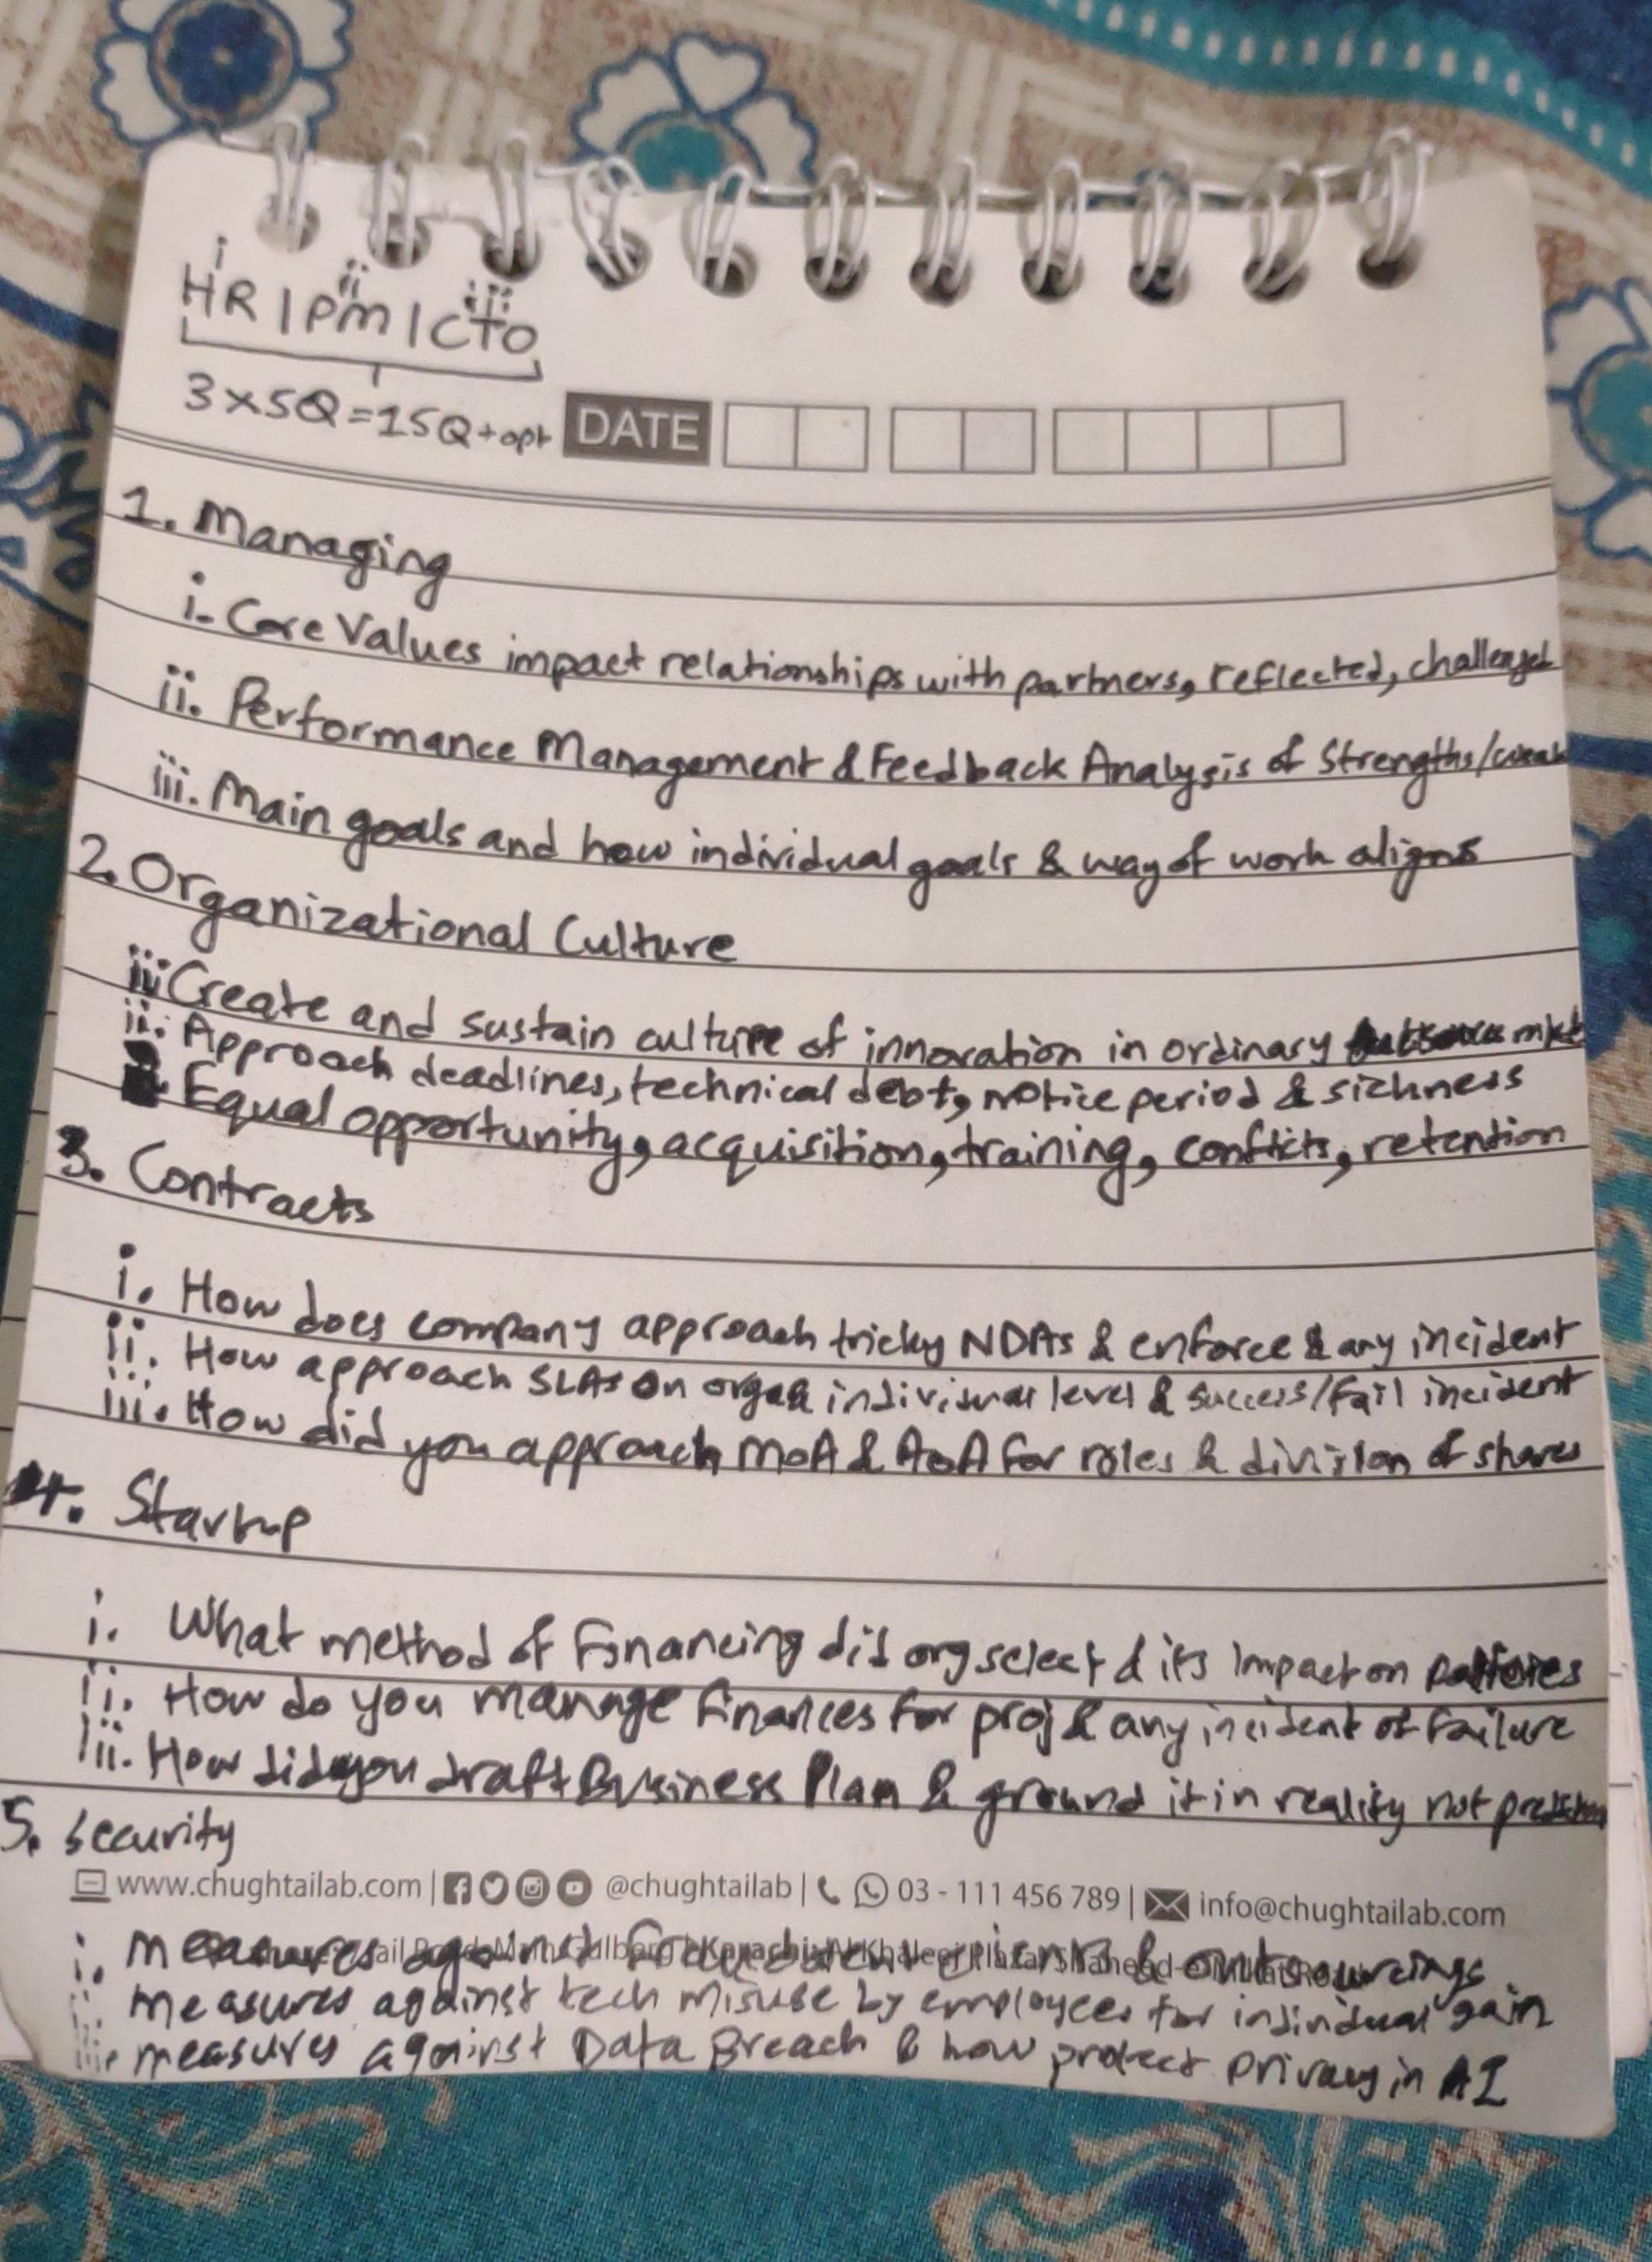 i ii iii
HR | PM | CTO
3×5Q=15Q+opt DATE
1. Managing
i- Core Values impact relationships with partners, reflected, challenged
ii. Performance Management & Feedback Analysis of Strengths/weak
iii. Main goals and how individual goals & way of work aligns
2. Organizational Culture
iii Create and sustain culture of innovation in ordinary mkt
ii. Approach deadlines, technical debt, notice period & sickness
Equal opportunity, acquisition, training, conflicts, retention
3. Contracts
i. How does company approach tricky NDAs & enforce & any incident
ii. How approach SLAs on org& individual level & success/fail incident
iii. How did you approach MoA & AoA for roles & division of shares
4. Startup
i. What method of Financing did org select & its impact on policies
ii. How do you manage finances for proj & any incident of failure
iii. How did you draft Business Plan & ground it in reality not
5. Security
www.chughtailab.com | @chughtailab | 03 - 111 456 789 | info@chughtailab.com
i. measures against & outsourcings
ii. measures against tech misuse by employees for individual gain
iii. measures against Data Breach & how protect privacy in AI